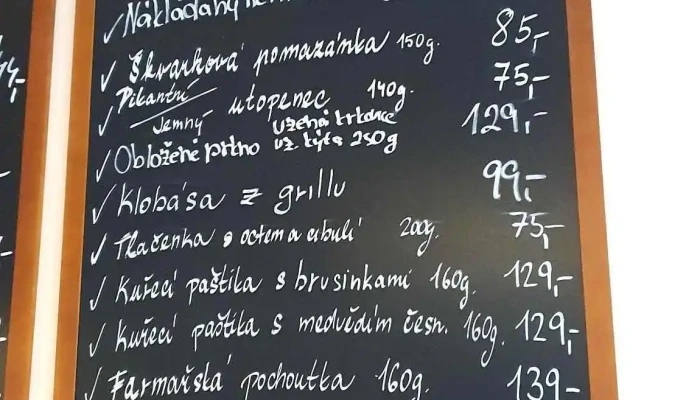 Nakládaný
Škvarková pomazánka 150g. 85,-
Pikantní
Jemný utopenec 140g. 75,-
Obložené prkno uzená krkovice uz. kýta 250g 129,-
Klobása z grillu 99,-
Tlačenka s octem a cibulí 200g. 75,-
Kuřecí paštika s brusinkami 160g. 129,-
Kuřecí paštika s medvědím česn. 160g. 129,-
Farmářská pochoutka 160g. 139-